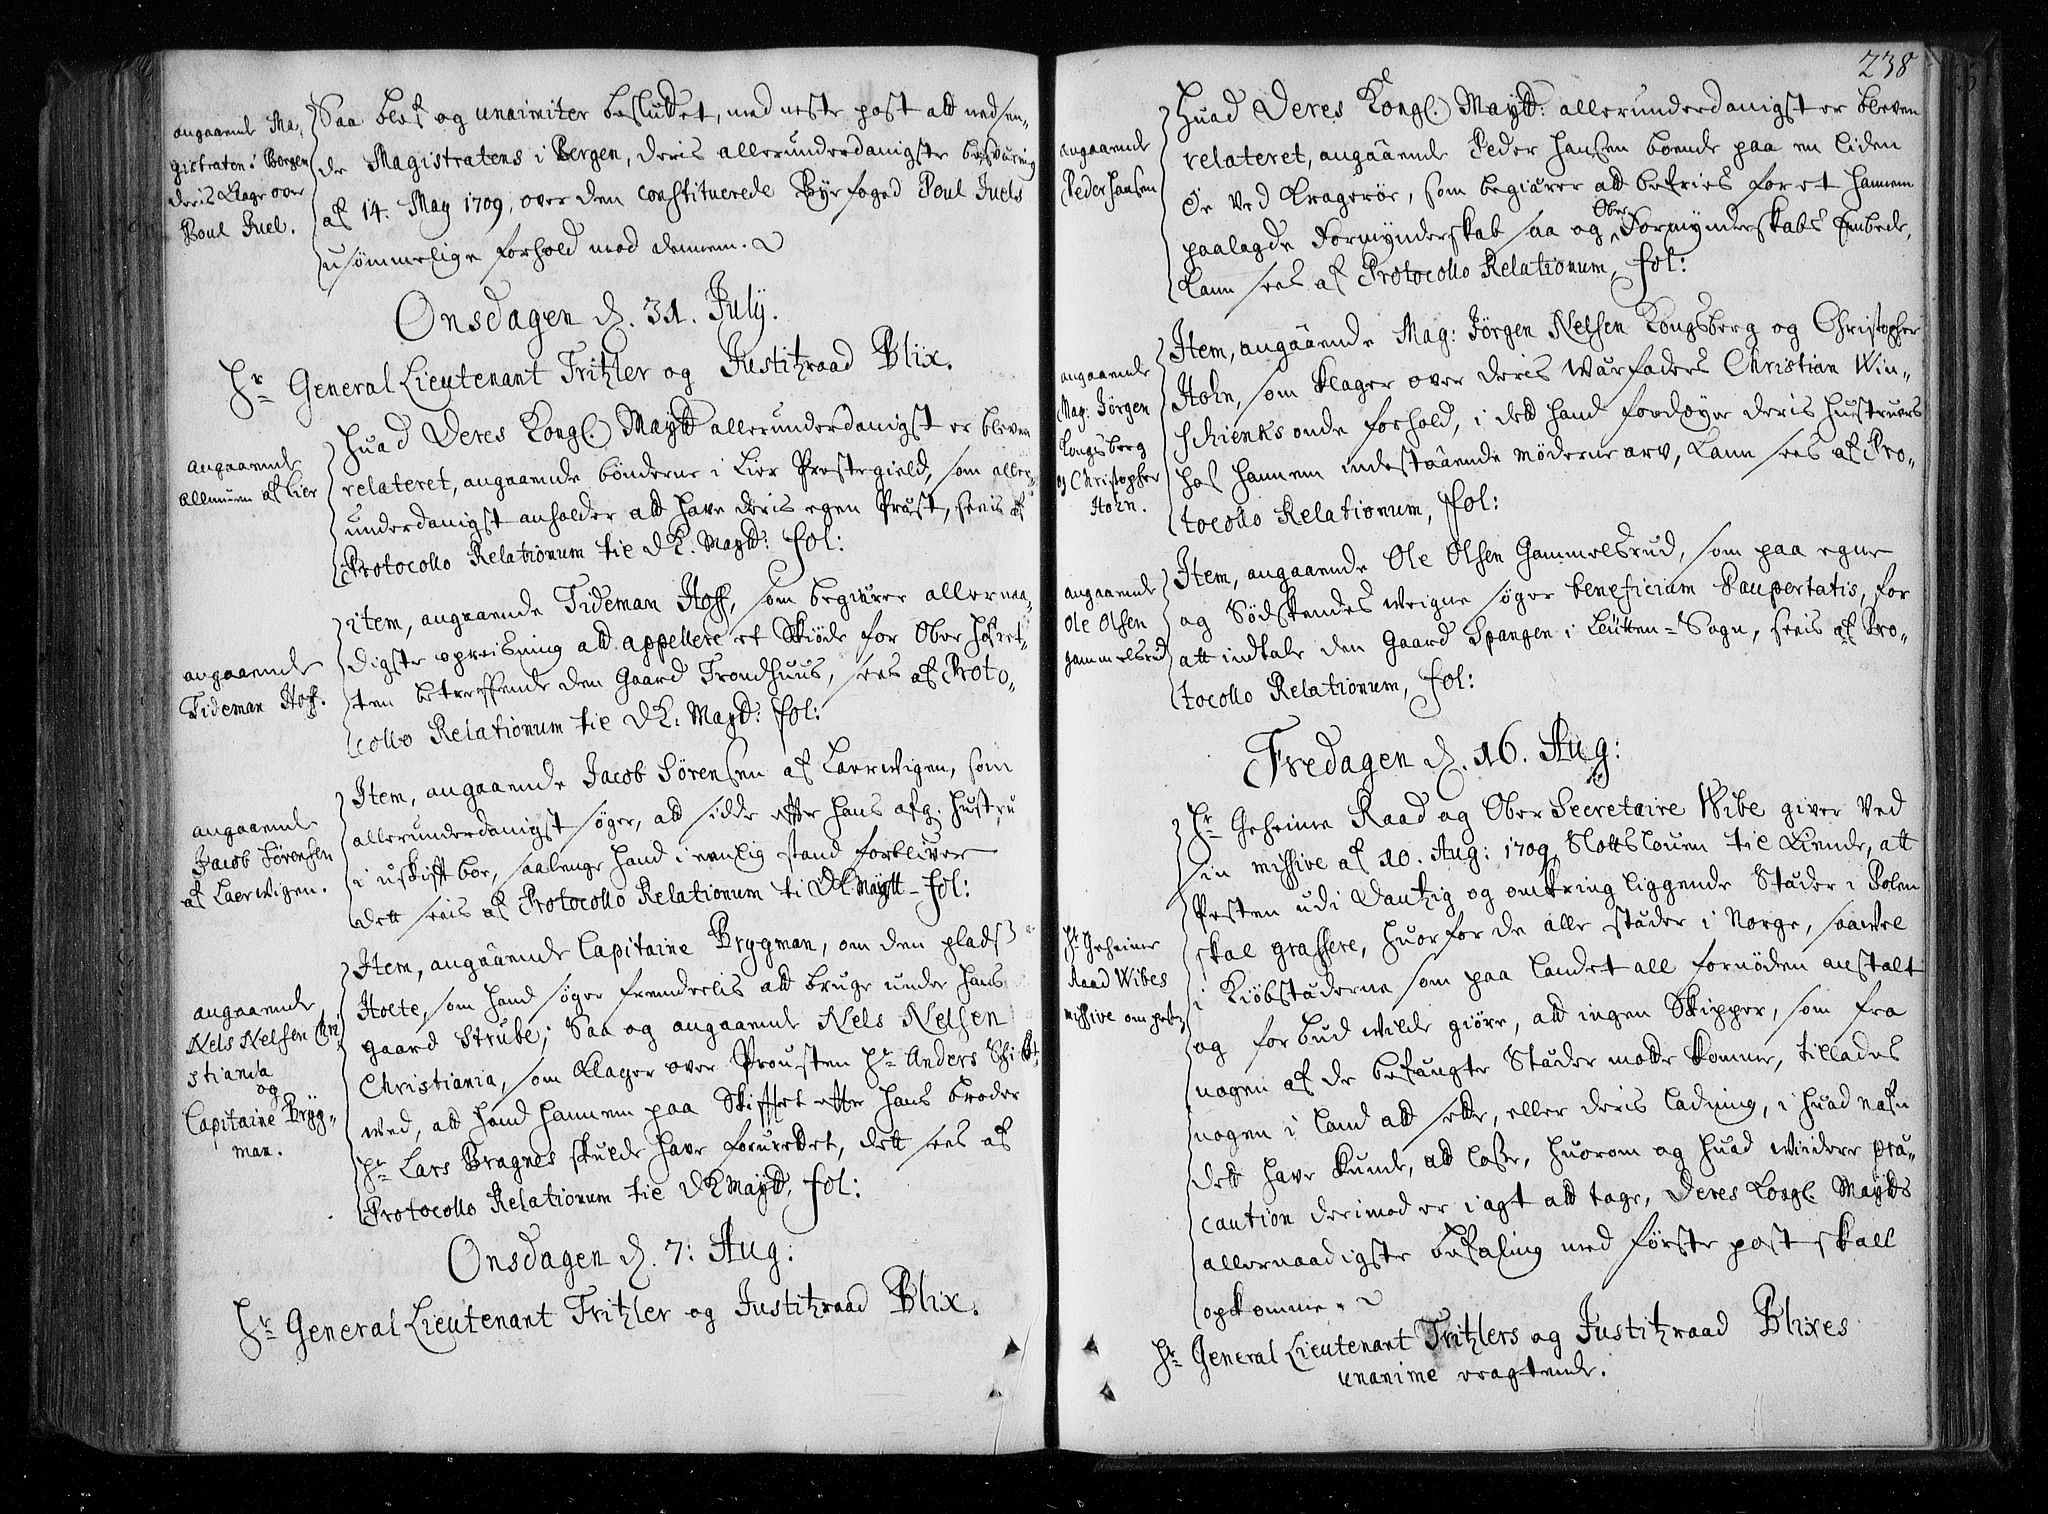 angaaende Ma-
gistraten i Bergen
deris Klage over
Poul Juel.
Saa blef og unanimiter besluttet, med neste post att nedsen-
de Magistratens i Bergen, deris allerunderdanigste besværing
af 14. May 1709, over den constituerede Byefoged Poul Juels
usømmelige forhold mod dennem.
Onsdagen d. 31. July.
Hr General Lieutenant Tritzler og Justitzraad Blix.
angaaende
allmuen af Lier
Huad Deres Kongl. Maytt allerunderdanigst er bleven
relateret, angaaende bønderne i Lier Prestegield, som aller-
underdanigst anholder att have deris egen Præst, seeis af
Protocollo Relationum til D K. Maytt: fol:
angaaende
Tideman Hoff.
item, angaaende Tideman Hoff, som begiærer allernaa-
digste opreisning att appellere et Skiøde for Ober Hofret-
ten betreffende den Gaard Trondhuus, sees af Proto-
collo Relationum til D K: Maytt: fol:
angaaende
Jacob Sørensen
af Laerwigen.
Item, angaaende Jacob Sørensen af Laerwigen, som
allerunderdanigst søger, att sidde efter hans afg. Hustru
i uskift boe, saalenge hand i enlig stand forbliver
dett seeis af Protocollo Relationum til D K Maytt - fol:
angaaende
Nels Nelsen Chri
stiania
og
Capitaine Bryg-
man.
Item, angaaende Capitaine Brygman, om den plads
Holte, som hand søger fremdeelis att bruge under hans
gaard Strube; Saa og angaaende Nels Nelsen
Christiania, som Klager over Prousten Hr Anders
wed, att hand hannem paa Skiftet efter hans broder
Hr Lars Bragnes skulde have forurettet, dett sees af
Protocollo Relationum til D K Maytt, fol:
Onsdagen d. 7: Aug:
Hr General Lieutenant Tritzler og Justitzraad Blix.
238
angaaende
Peder Hansen
Huad Deres Kongl. Maytt: allerunderdanigst er bleven
relateret, angaaende Peder Hansen boende paa en liden
Øe ved Kragerøe, som begiærer att befries for et hannem
paalagde Formynderskab saa og Ober Formynderskabs Embede,
kann sees af Protocollo Relationum, fol:
angaaende
Mag: Jørgen
Kongsberg
og Christopher
Hohn.
Item, angaaende Mag: Jørgen Nelsen Kongsberg og Christopher
Hohn, som klager over deris Wærfaders Christian Win-
schienks onde forhold, i dett hand fordøye deris hustruers
hos hannem indestaaende møderne arv, kann sees af Pro-
tocollo Relationum, fol:
angaaende
Ole Olsen
Gammelsrud
Item, angaaende Ole Olsen Gammelsrud, som paa egne
og Sødskendes weigne søger beneficium Paupertatis, for
att indtale den Gaard Spangen i Leüten-Sogn, seeis af Pro-
tocollo Relationum, fol:
Fredagen d. 16. Aug:
Hr Geheime
Raad Wibes
missive om pest
Hr Geheime Raad og Ober Secretaire Wibe giver ved
sin missive af 10. Aug: 1709 Slottslouen til kiende, att
Pesten udi Dantzig og omkring liggende Stæder i Polen
skal grassere, huorfor de alle stæder i Norge, saawel
i Kiøbstæderne som paa Landet all fornøden anstalt
og forbud wilde giøre, att ingen Skipper, som fra
nogen af de befængte Stæder motte komme, tillades
nogen i Land att sette, eller deris ladning, i huad nafn
dett have kunde, att losse, huorom og huad widere præ-
caution derimod er i agt att tage, Deres Kongl. Maytts
allernaadigste befaling med første post skall
opkomme.
Hr General Lieutenant Tritzlers og Justitzraad Blixes
unanime eragtende.